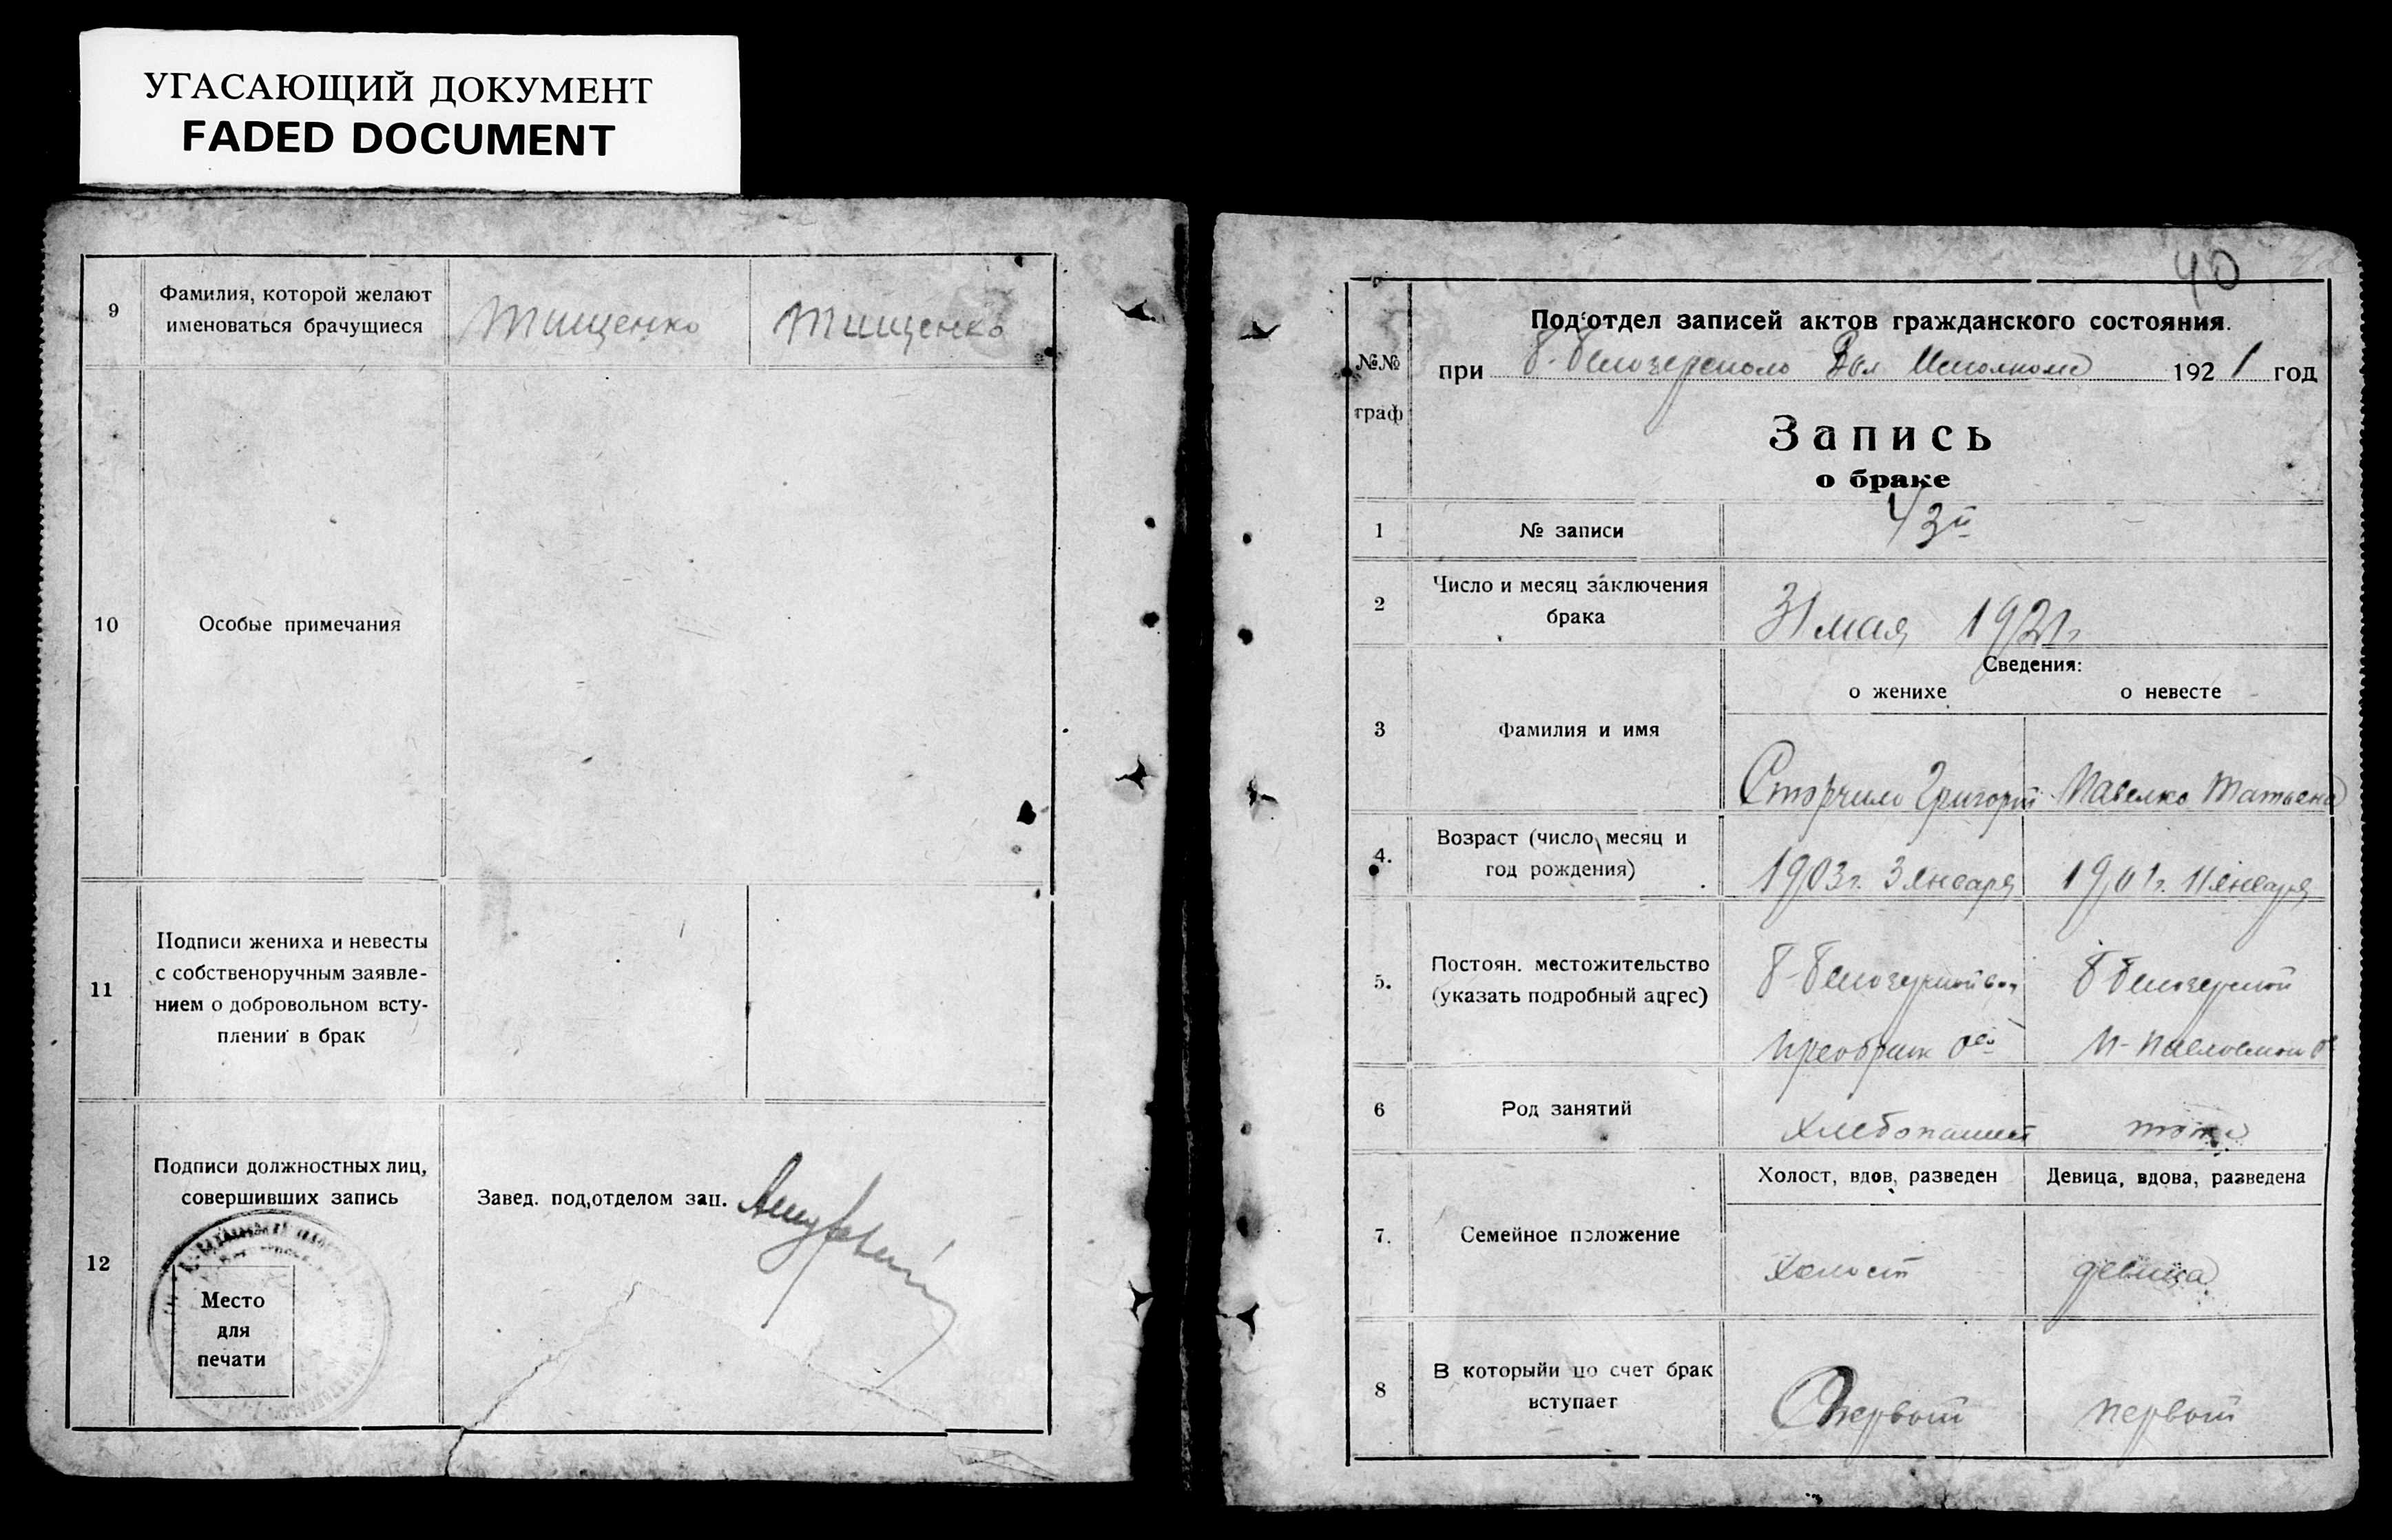 УГАСАЮЩИЙ ДОКУМЕНТ
FADED DOCUMENT
9
Фамилия, которой желают
именоваться брачущиеся
Тищенко
Тищенко
10
Особые примечания
11
Подписи жениха и невесты
с собственоручным заявле-
нием о добровольном всту-
плении в брак
12
Подписи должностных лиц,
совершивших запись
Место
для
печати
Завед. под‚отделом зап.
40
№№
граф
Под‘отдел записей актов гражданского состояния.
при Б-Белозерского Вол Исполкоме 1921 год
Запись
о браке
1
№ записи
43й
2
Число и месяц заключения
брака
31 мая 1921г
3
Фамилия и имя
Сведения:
о женихе
о невесте
Григорий
Павелко Татьяна
4.
Возраст (число, месяц и
год рождения)
1903г. 3 января
1901г. 11 января
5.
Постоян. местожительство
(указать подробный адрес)
Б-Белозерской вол
Преображ
Б Белозерской
П-Павловской
6
Род занятий
Хлебопашец
тоже
7.
Семейное положение
Холост, вдов, разведен
Девица, вдова, разведена
Холост
девица
8
В которыйи по счет брак
вступает
первый
первый